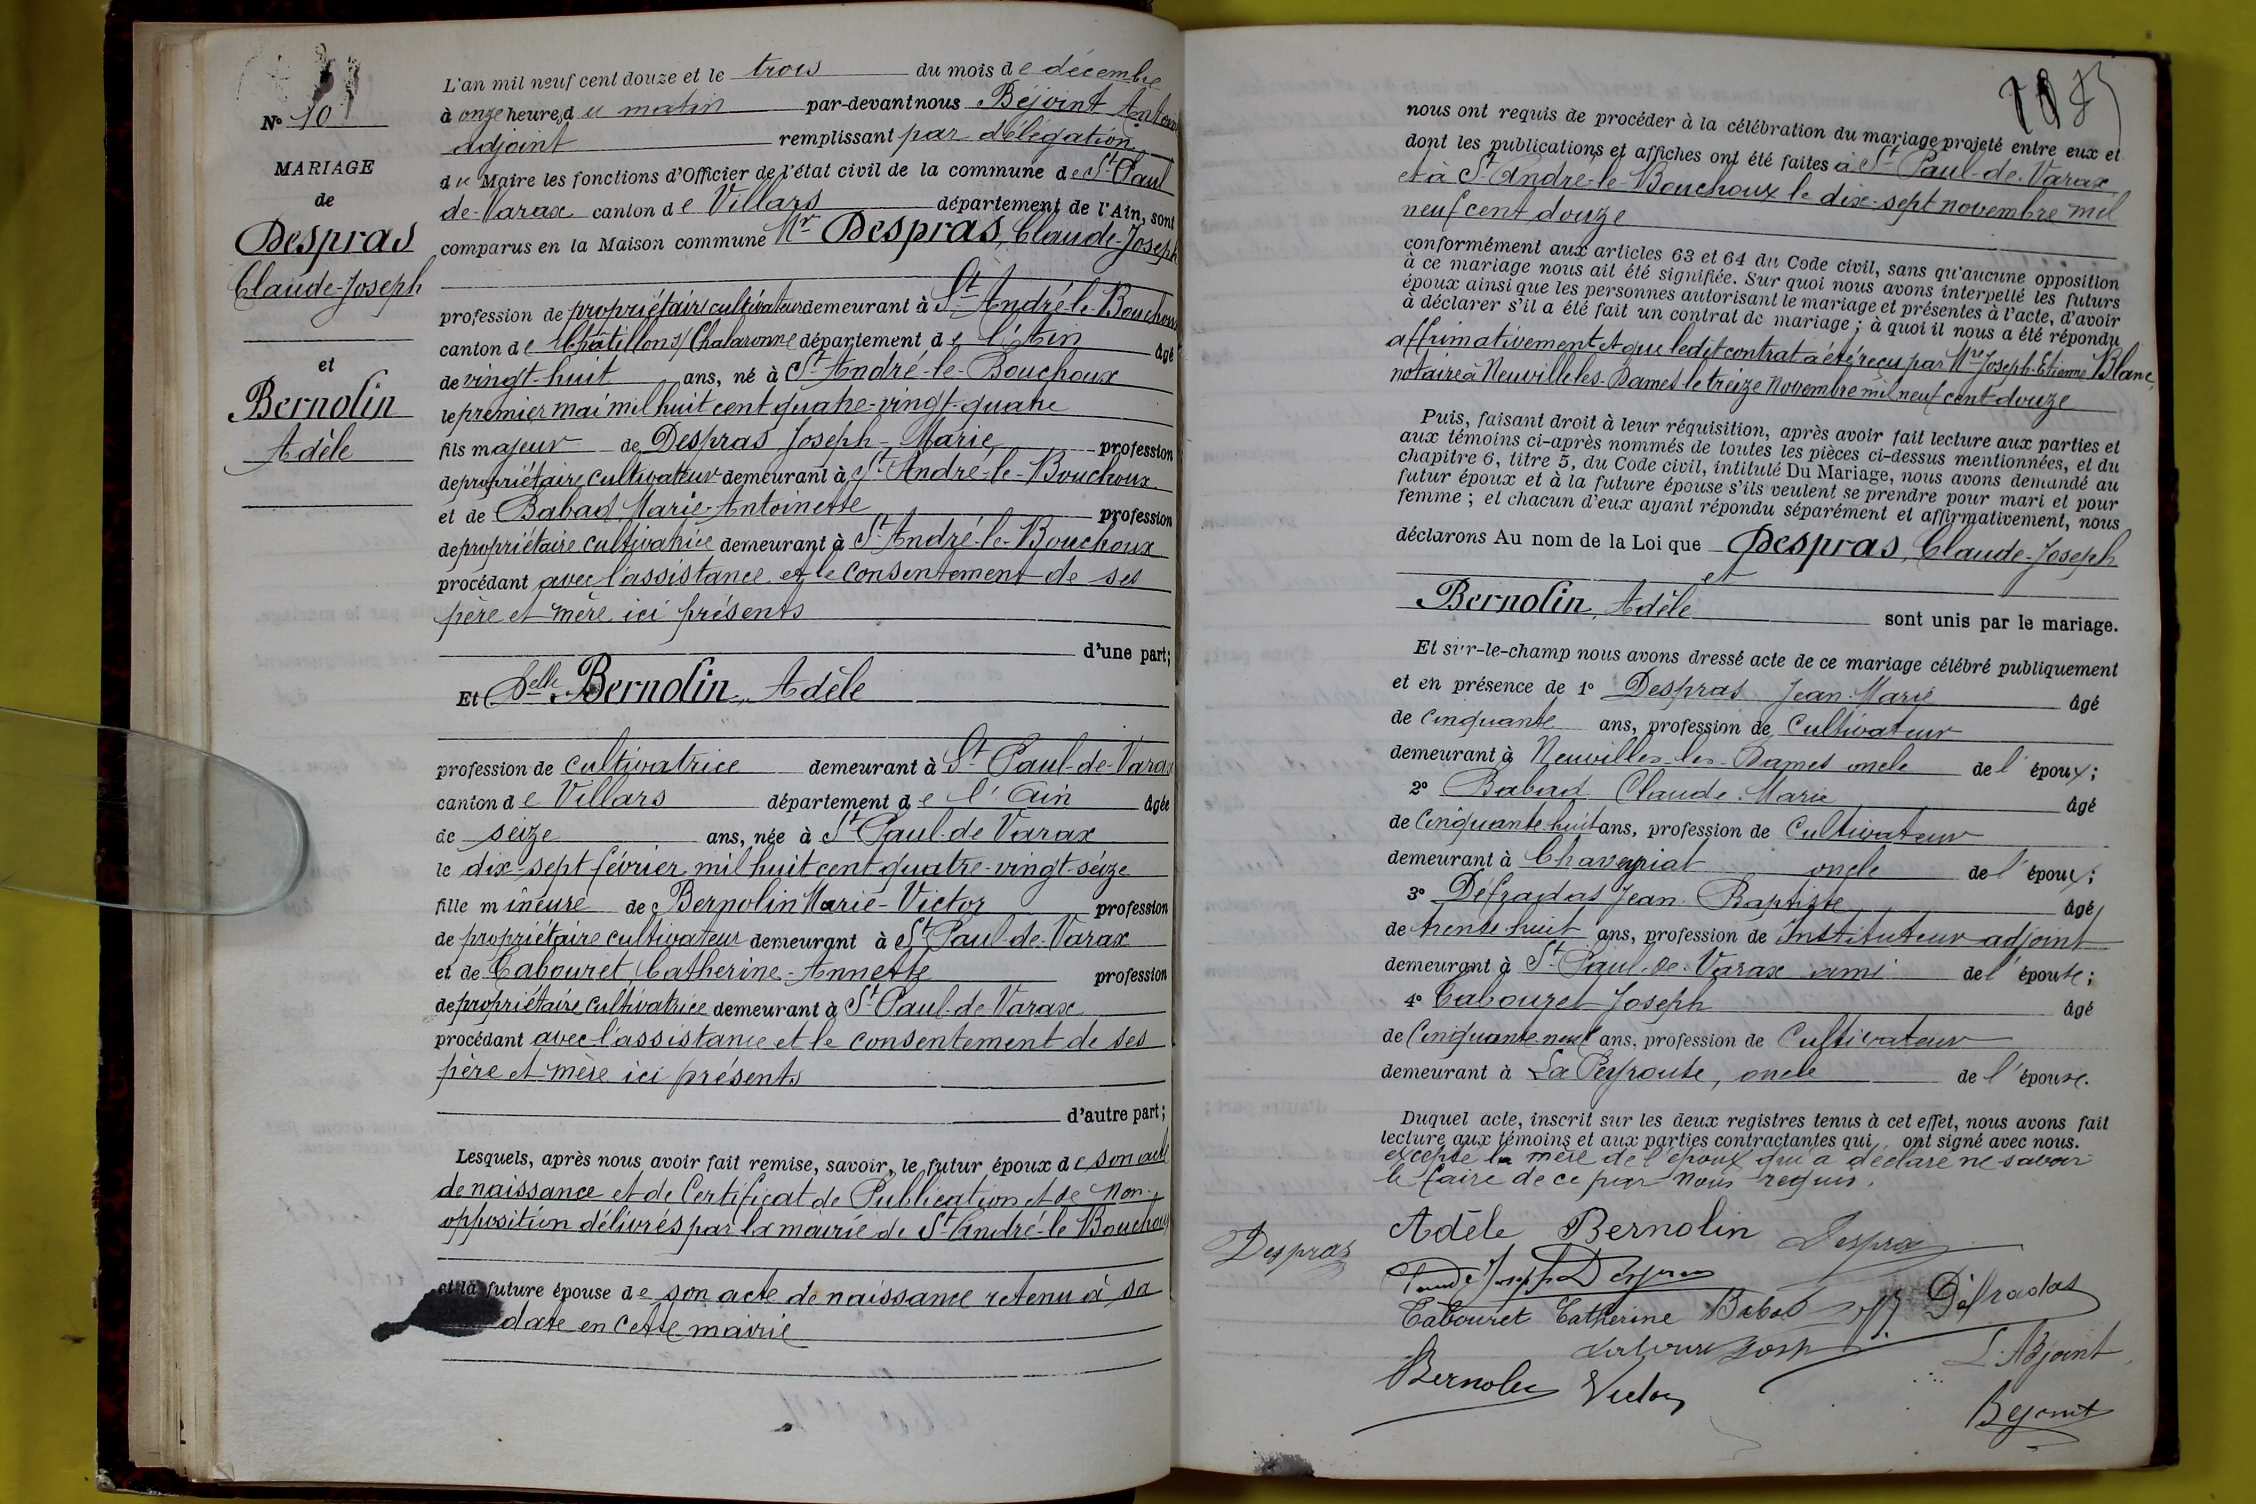 N° 10
MARIAGE
de
Despras
Claude-Joseph
et
Bernolin
Adèle
L'an mil neuf cent douze et le trois du mois de décembre
à onze heures du matin par-devant nous Béjoint Antoine
adjoint remplissant par délégation
du Maire les fonctions d'Officier de l'état civil de la commune de St Paul
de-Varax canton de Villars département de l'Ain, sont
comparus en la Maison commune Mr Despras, Claude-Joseph
profession de propriétaire cultivateur demeurant à St André-le-Bouchoux
canton de Châtillon s/ Chalaronne département de l'Ain âgé
de vingt-huit ans, né à St André-le-Bouchoux
le premier mai mil huit cent quatre-vingt-quatre
fils majeur de Despras Joseph-Marie, profession
de propriétaire cultivateur demeurant à St André-le-Bouchoux
et de Babad Marie-Antoinette profession
de propriétaire cultivatrice demeurant à St André-le-Bouchoux
procédant avec l'assistance et le consentement de ses
père et mère ici présents
d'une part;
Et Delle Bernolin, Adèle
profession de cultivatrice demeurant à St Paul-de-Varax
canton de Villars département de l'Ain âgée
de seize ans, née à St Paul-de Varax
le dix-sept février mil huit cent quatre-vingt-seize
fille mineure de Bernolin Marie-Victor profession
de propriétaire cultivateur demeurant à St Paul-de-Varax
et de Cabouret Catherine-Annette profession
de propriétaire cultivatrice demeurant à St Paul-de Varax
procédant avec l'assistance et le consentement de ses
père et mère ici présents
d'autre part;
Lesquels, après nous avoir fait remise, savoir, le futur époux de son acte
de naissance et de Certificat de Publication et de Non-
opposition délivrés par la mairie de St André-le Bouchoux
et la future épouse de son acte de naissance retenu à sa
date en cette mairie
nous ont requis de procéder à la célébration du mariage projeté entre eux et
dont les publications et affiches ont été faites à St Paul-de-Varax
et à St André-le-Bouchoux le dix-sept novembre mil
neuf cent douze
conformément aux articles 63 et 64 du Code civil, sans qu'aucune opposition
à ce mariage nous ait été signifiée. Sur quoi nous avons interpellé les futurs
époux ainsi que les personnes autorisant le mariage et présentes à l'acte, d'avoir
à déclarer s'il a été fait un contrat de mariage; à quoi il nous a été répondu
affirmativement et que ledit contrat a été reçu par Mre Joseph-Etienne Blanc,
notaire à Neuville les-Dames le treize Novembre mil neuf cent-douze
Puis, faisant droit à leur réquisition, après avoir fait lecture aux parties et
aux témoins ci-après nommés de toutes les pièces ci-dessus mentionnées, et du
chapitre 6, titre 5, du Code civil, intitulé Du Mariage, nous avons demandé au
futur époux et à la future épouse s'ils veulent se prendre pour mari et pour
femme; et chacun d'eux ayant répondu séparément et affirmativement, nous
déclarons Au nom de la Loi que Despras, Claude-Joseph
et
Bernolin, Adèle sont unis par le mariage.
Et sur-le-champ nous avons dressé acte de ce mariage célébré publiquement
et en présence de 1° Despras Jean-Marie âgé
de Cinquante ans, profession de Cultivateur
demeurant à Neuville-les-Dames oncle de l'époux;
2° Babad Claude-Marie âgé
de Cinquante huit ans, profession de Cultivateur
demeurant à Chaveyriat oncle de l'époux;
3° Défradas Jean-Baptiste âgé
de trente huit ans, profession de Instituteur adjoint
demeurant à St Paul-de-Varax ami de l'épouse;
4° Cabouret Joseph âgé
de Cinquante neuf ans, profession de Cultivateur
demeurant à La Peyrouse, oncle de l'épouse.
Duquel acte, inscrit sur les deux registres tenus à cet effet, nous avons fait
lecture aux témoins et aux parties contractantes qui ont signé avec nous.
excepté la mère de l'époux qui a déclaré ne savoir
le faire de ce par nous requis.
Adèle Bernolin Despras
Despras
Claude Joseph Despras
Cabouret Catherine Babad Défradas
L'Adjoint
Bernolin Victor
Bejoint